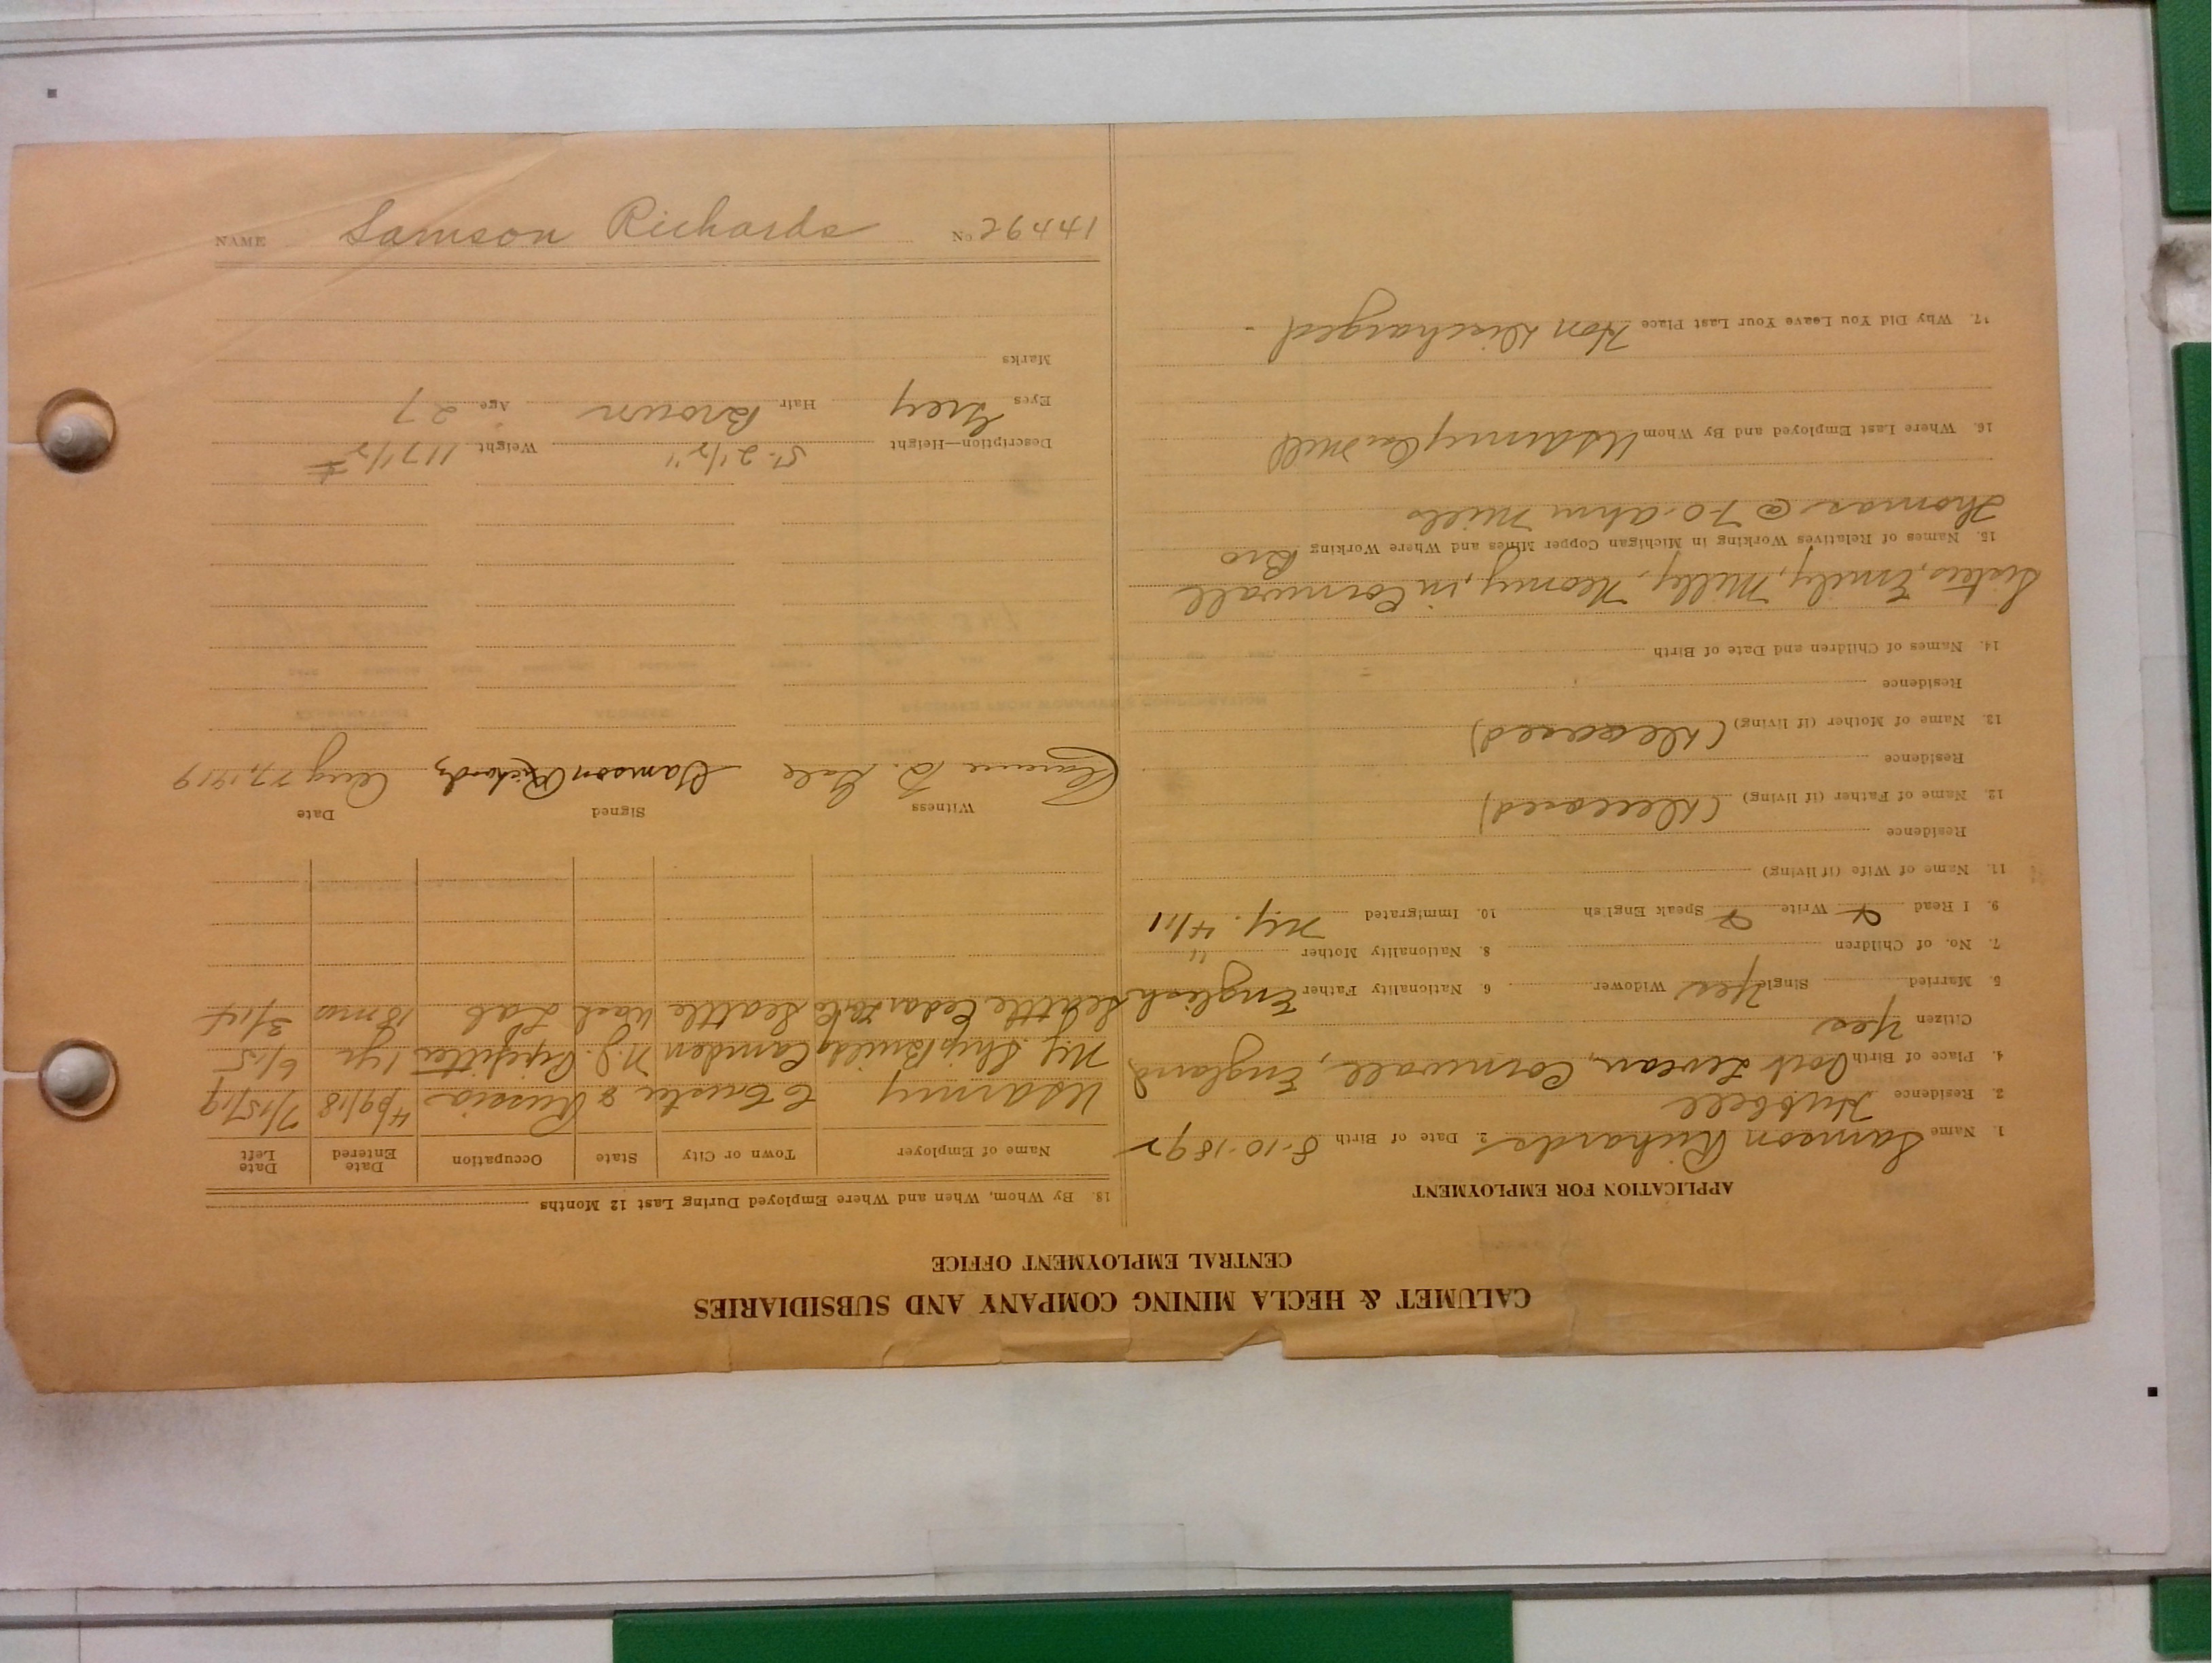 CALUMET & HECLA MINING COMPANY AND SUBSIDIARIES
CENTRAL EMPLOYMENT OFFICE
APPLICATION FOR EMPLOYMENT
1. Name Samson Richards 2. Date of Birth 8-10-1892
3. Residence Hubbell
4. Place of Birth Levean, Cornwall, England
Citizen Yes
5. Married Single Yes Widower 6. Nationality Father English
7. No. of Children 8. Nationality Mother "
9. I Read Write Speak English 10. Immigrated N.Y. 4/11
11. Name of Wife (if living)
Residence
12. Name of Father (if living) (Deceased)
Residence
13. Name of Mother (if living) (Deceased)
Residence
14. Names of Children and Date of Birth
Sisters, Emily, Milly, in Cornwall
15. Names of Relatives Working in Michigan Copper Mines and Where Working Bro
Thomas @ Mills
16. Where Last Employed and By Whom US Army
17. Why Did You Leave Your Last Place Hon Discharged -
18. By Whom, When and Where Employed During Last 12 Months
Name of Employer Town or City State Occupation Date Entered Date Left
US Army C Custer & Russia 4/29/18 7/15/19
N.Y. Ship Build Camden N.J. Pipefitter 1 yr 6/15
Seattle Seattle Wash Lab 18 mos 3/14
Witness Signed Date
Clarence B. Samson Richards Aug 1919
Description—Height 5'-2 1/2" Weight 117 1/2 #
Eyes Grey Hair Brown Age 27
Marks
NAME Samson Richards No 29441